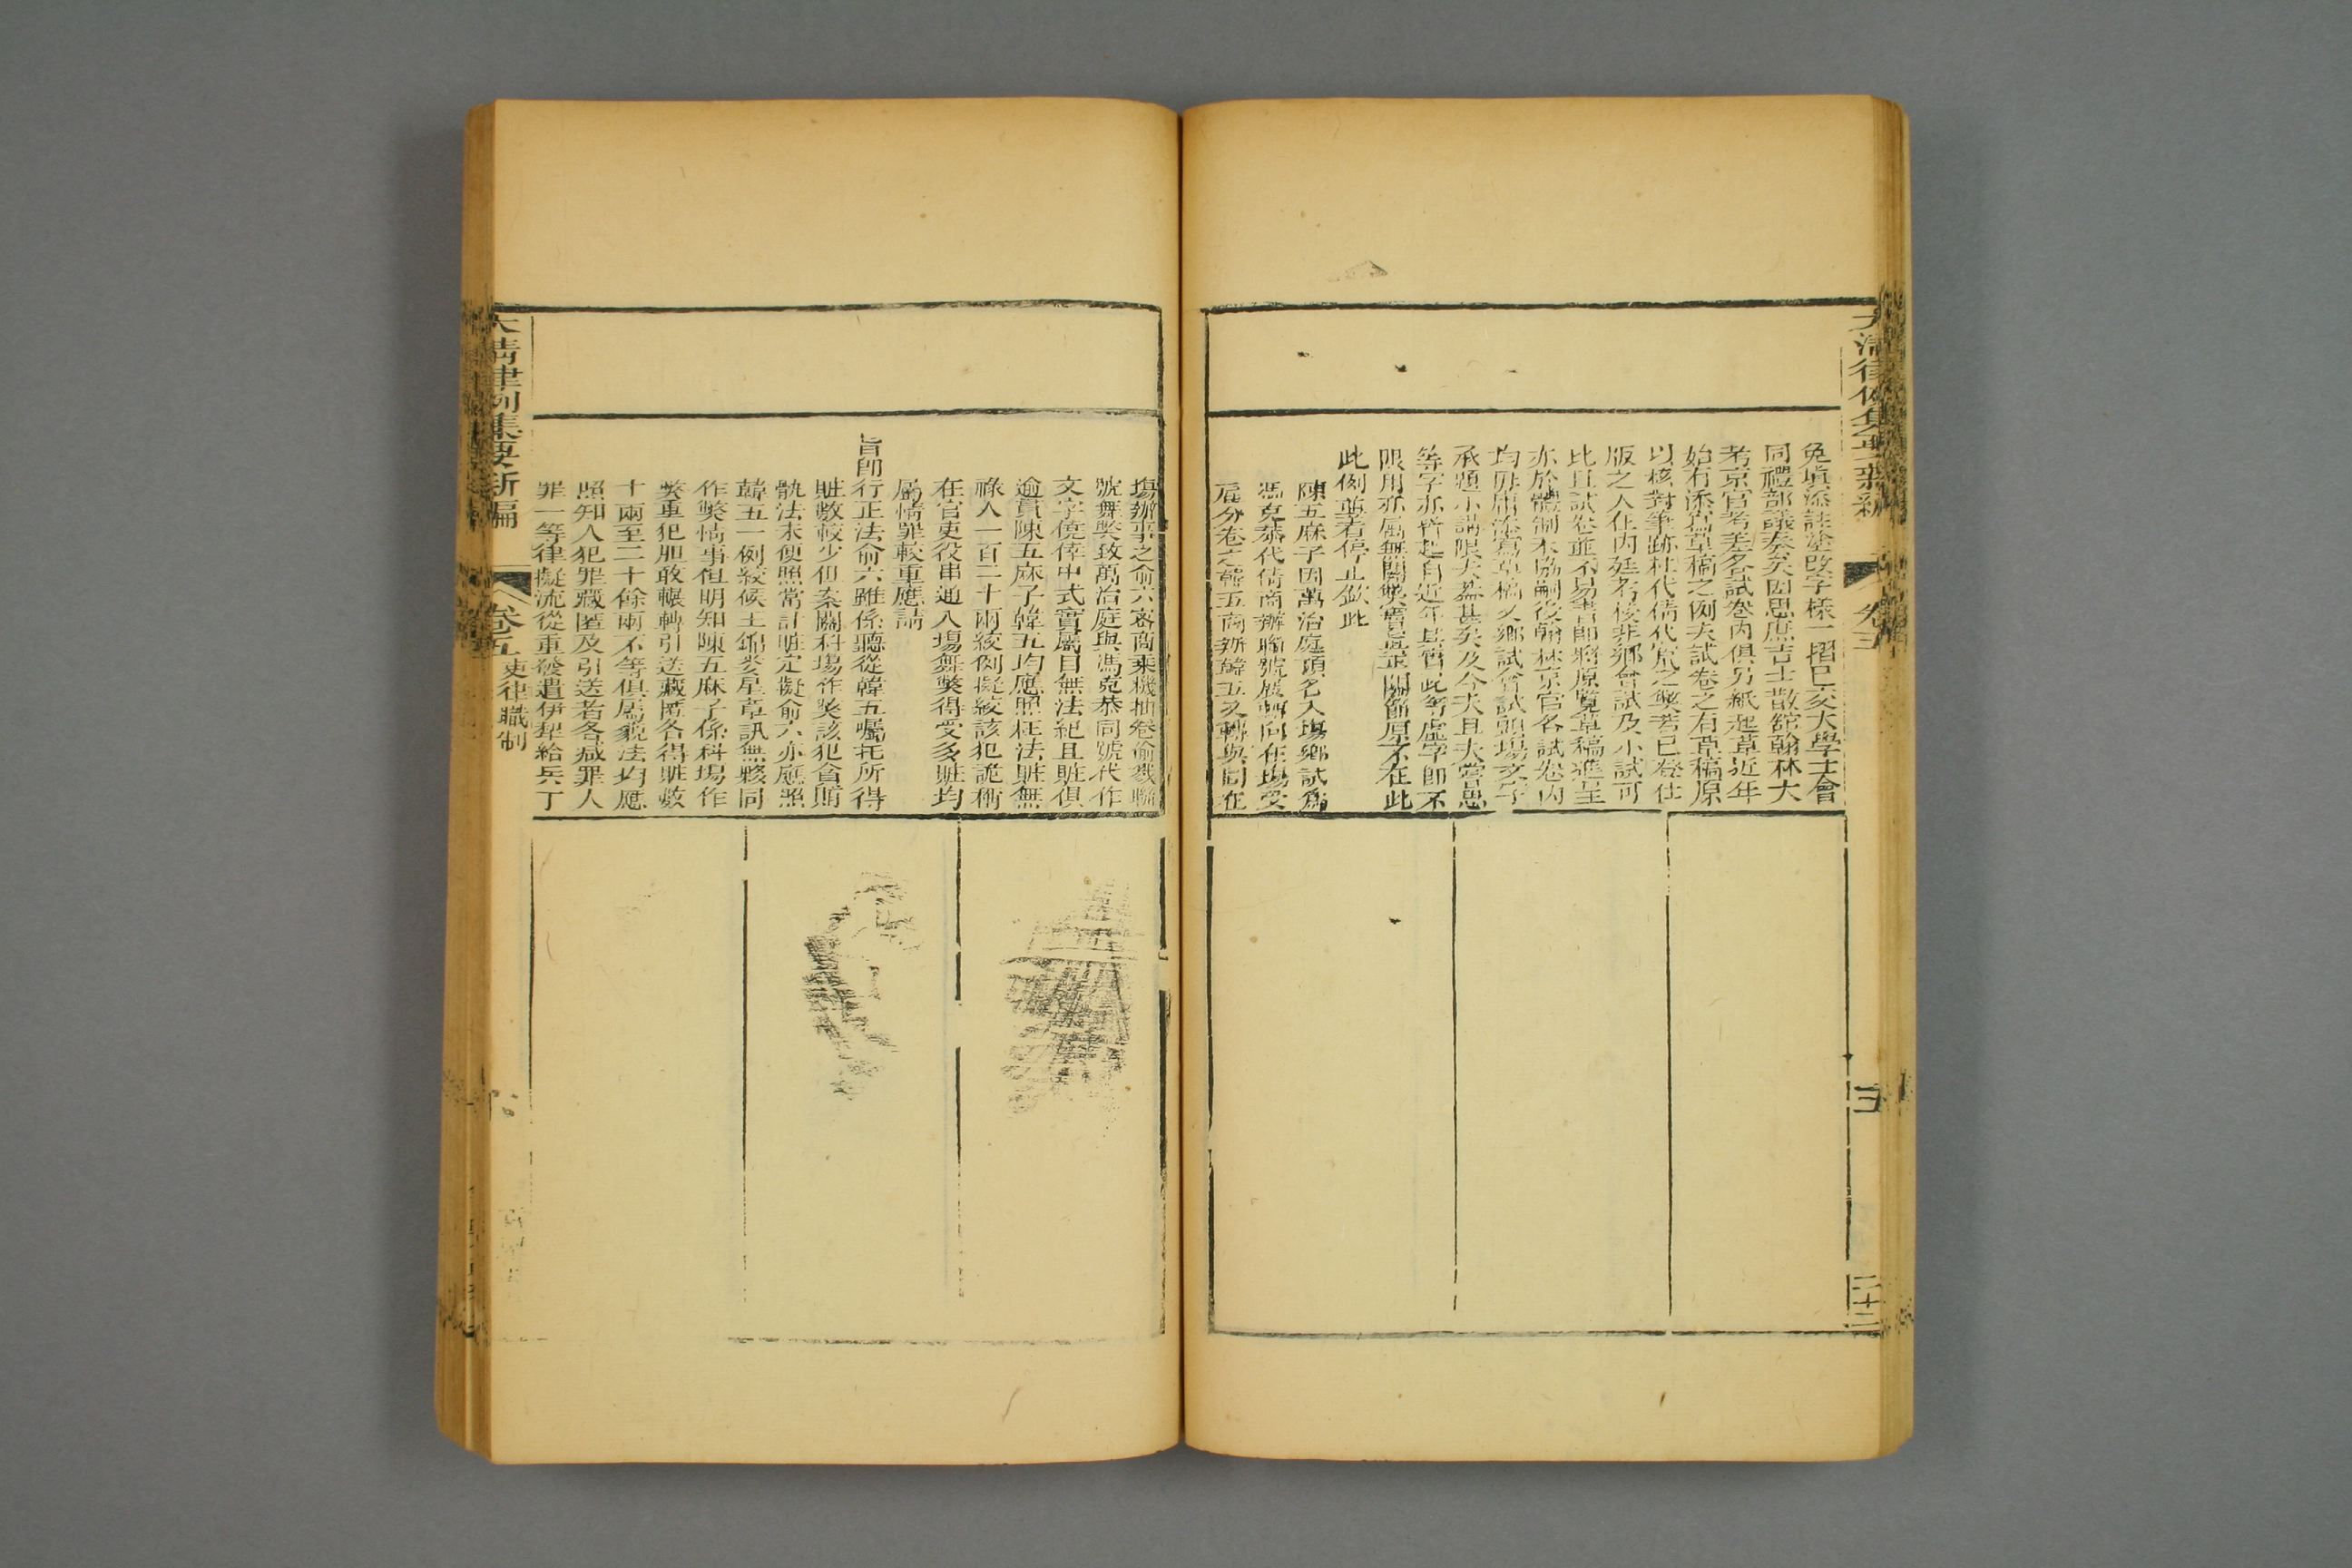 大清律例集要新編
卷五
三
二十二
免填添註塗改字樣一摺已亥大學士會
同禮部議奏矣因思庶吉士散館翰林大
考京官考差各試卷內俱另紙起草近年
始有添寫草稿之例夫試卷之有草稿原
以核對筆跡杜代倩代寫之獘若已登仕
版之人在內廷考核非鄉會試及小試可
比且試卷並不易書即將原覽草稿進呈
亦於體制未協嗣後翰林京官各試卷內
均毋庸添寫草稿又鄉試會試頭場文字
承題小講限夫蓋甚矣及今夫且夫嘗思
等字亦新起自近年其實此等虛字即不
限用亦屬無關獘竇並關節原不在此
此例並著停止欽此
陳五麻子因萬治庭頂名入場鄉試為
馮克恭代倩商辦聯號展轉向在場受
雇分卷之韓五商辦韓五又轉與同在
場辦事之俞六密商乘機抽卷偷戳聯
號舞獘致萬治庭與馮克恭同號代作
文字僥倖中式實屬目無法紀且賍俱
逾貫陳五麻子韓五均應照枉法賍無
祿人一百二十兩絞例擬絞該犯詭稱
在官吏役串通入場舞獘得受多賍均
屬情罪較重應請
旨即行正法俞六雖係聽從韓五囑托所得
賍數較少但案關科場作獘該犯貪賄
骫法未便照常計賍定擬俞六亦應照
韓五一例絞候王錦麥星章訊無夥同
作獘情事但明知陳五麻子係科場作
獘重犯胆敢輾轉引送藏匿各得賍數
十兩至二十餘兩不等俱屬藐法均應
照知人犯罪藏匿及引送者各減罪人
罪一等律擬流從重發遣伊犂給兵丁
大清律例集要新編
卷五
吏律職制